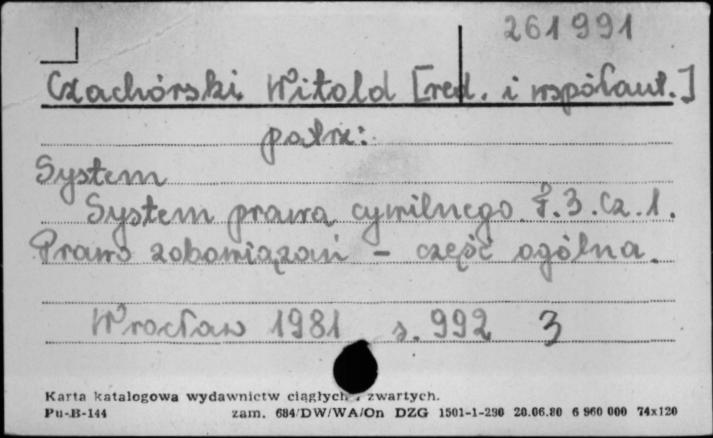 261991
Czachórski Witold [red. i współaut.]
patrz:
System
System prawa cywilnego. T. 3. Cz. 1.
Prawo zobowiązań - część ogólna.
Wrocław 1981 s. 992 3
Karta katalogowa wydawnictw ciągłych i zwartych.
Pu-B-144 zam. 684/DW/WA/On DZG 1501-1-290 20.06.80 6 960 000 74x120